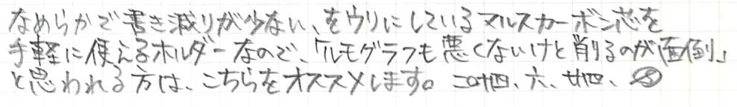 なめらかで書き減りが少ない、をウリにしているマルスカーボン芯を
手軽に使えるホルダーなので、「ルモグラフも悪くないけど削るのが面倒」
と思われる方は、こちらをオススメします。二〇廿四、六、廿四、